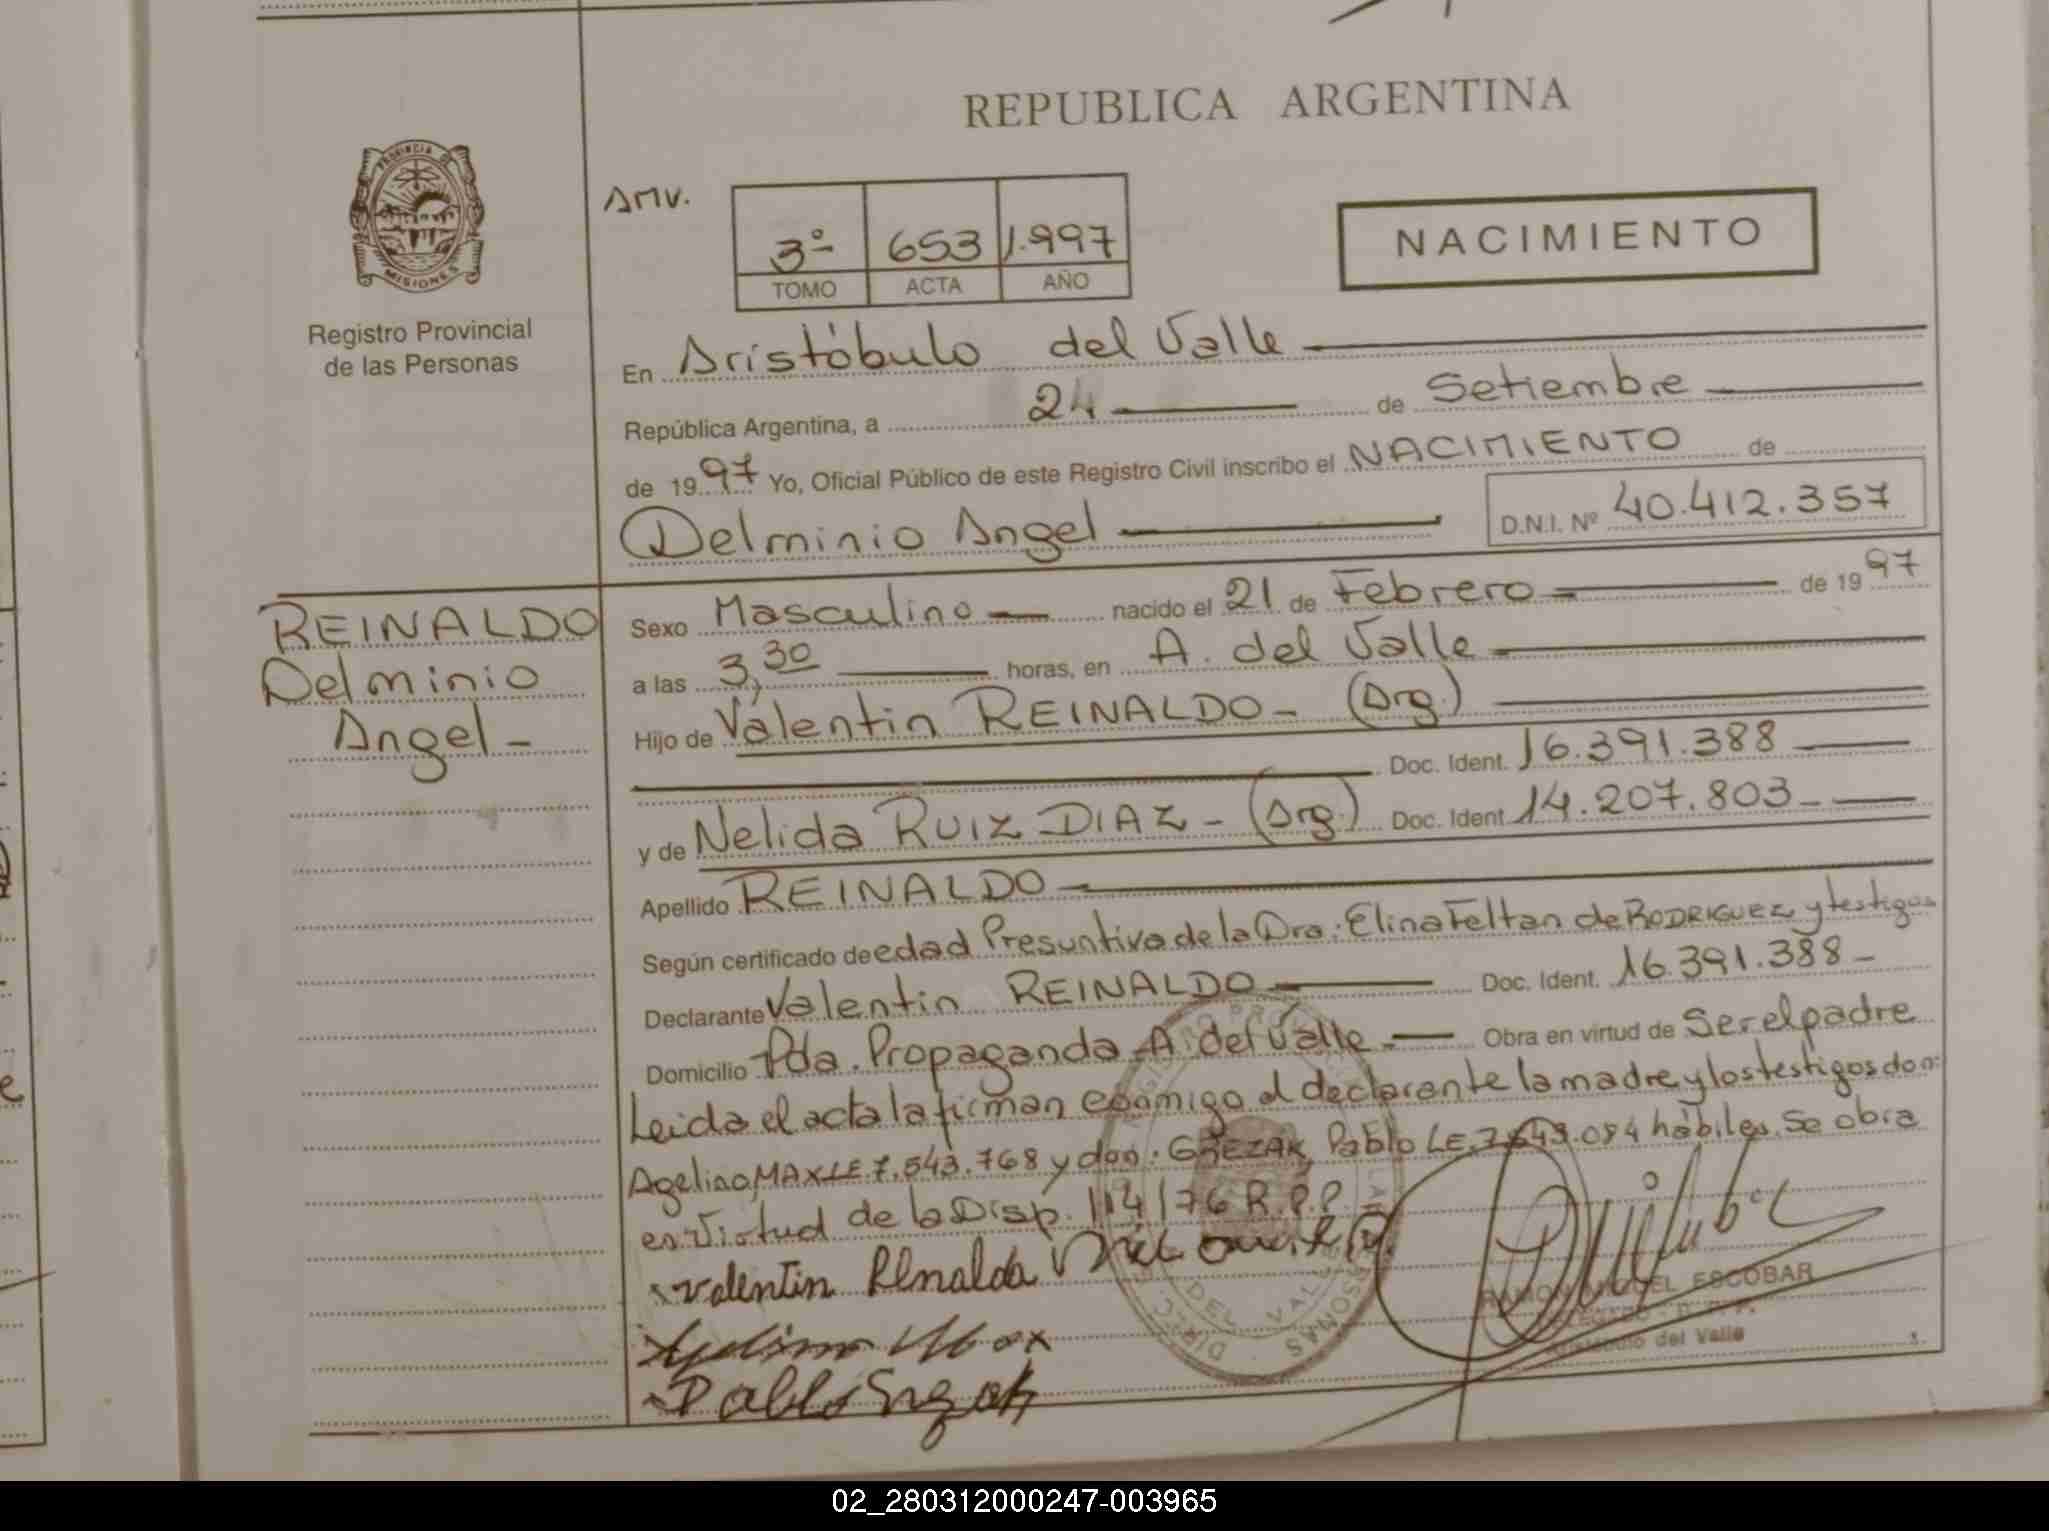 REPUBLICA ARGENTINA
PROVINCIA DE
MISIONES
Registro Provincial
de las Personas
AMV.
3º 653 1.997
TOMO ACTA AÑO
NACIMIENTO
En Aristóbulo del Valle
República Argentina, a 24 de Setiembre
de 1997 Yo, Oficial Público de este Registro Civil inscribo el NACIMIENTO de
Delminio Angel D.N.I. Nº 40.412.357
REINALDO
Delminio
Angel -
Sexo Masculino nacido el 21 de Febrero de 1997
a las 3,30 horas, en A. del Valle
Hijo de Valentin REINALDO - (Arg.)
Doc. Ident. 16.391.388
y de Nelida RUIZ DIAZ - (Arg.) Doc. Ident 14.207.803 -
Apellido REINALDO
Según certificado de edad Presuntiva de la Dra: Elina Feltan de RODRIGUEZ y testigos
Declarante Valentin REINALDO Doc. Ident. 16.391.388 -
Domicilio Pda. Propaganda A. del Valle Obra en virtud de Ser el padre
Leida el acta la firman conmigo el declarante la madre y los testigos don:
Agelino MAX LE.7.543.768 y don: Pablo LE. hábiles. Se obra
en Virtud de la Disp. 114/76 R.P.P.
Valentin
Max
Pablo
DEL VALLE
RAMON MIGUEL ESCOBAR
Aristobulo del Valle
02_280312000247-003965